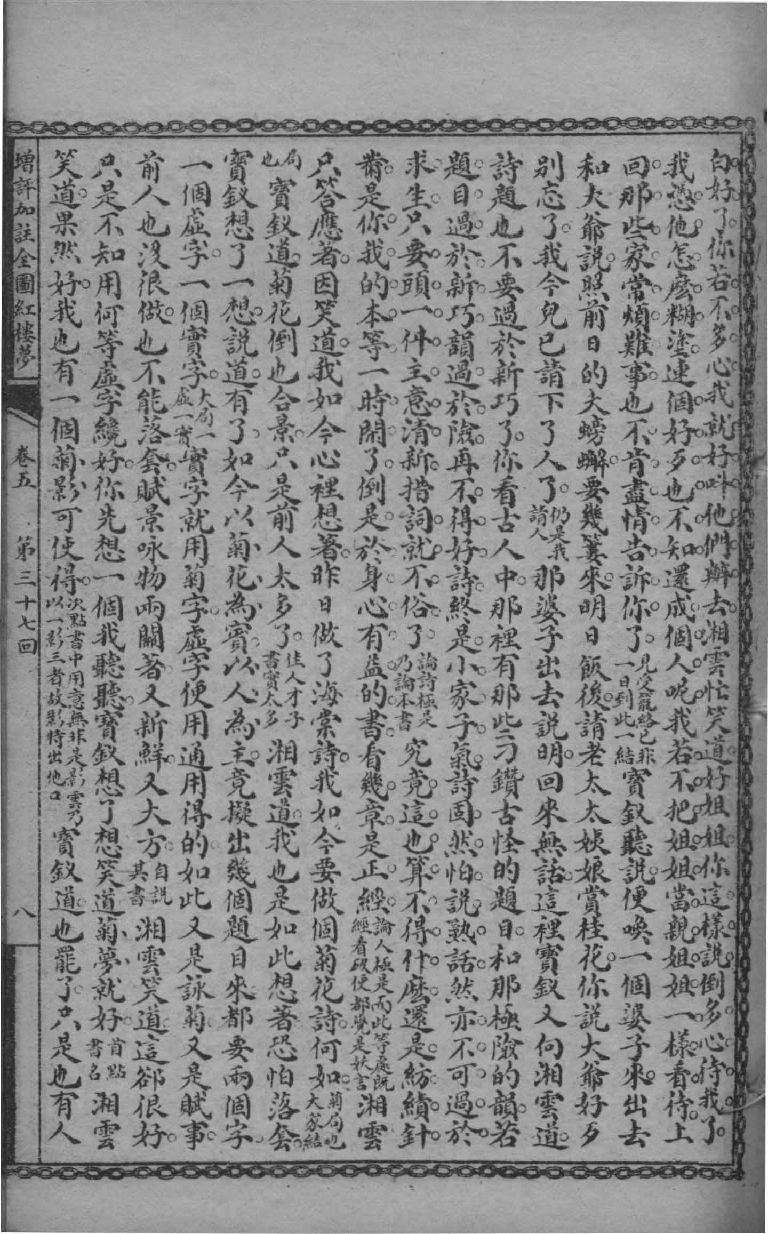 白好了你若不多心我就好叫他們辦去湘雲忙笑道好姐姐你這樣說倒多心待我了
我憑他怎麼糊塗連個好歹也不知還成個人呢我若不把姐姐當親姐姐一樣看待上
回那些家常煩難事也不肯盡情告訴你了見受籠絡已非一日到此一結寶釵聽說便喚一個婆子來出去
和大爺說照前日的大螃蠏要幾簍來明日飯後請老太太姨娘賞桂花你說大爺好歹
別忘了我今兒已請下了人了仍是我請人那婆子出去說明回來無話這裡寶釵又向湘雲道
詩題也不要過於新巧了你看古人中那裡有那些刁鑽古怪的題目和那極險的韻若
題目過於新巧韻過於險再不得好詩終是小家子氣詩固然怕說熟話然亦不可過於
求生只要頭一件主意清新措詞就不俗了論詩極是乃論本書究竟這也算不得什麼還是紡績針
黹是你我的本等一時閒了倒是於身心有益的書看幾章是正經論人極是而此等處既經看破便都覺是妖言湘雲
只答應著因笑道我如今心裡想著昨日做了海棠詩我如今要做個菊花詩何如菊局也大家結
局也寶釵道菊花倒也合景只是前人太多了佳人才子書實太多湘雲道我也是如此想著恐怕落套
寶釵想了一想說道有了如今以菊花為賓以人為主竟擬出幾個題目來都要兩個字
一個虛字一個實字大局一虛一實實字就用菊字虛字便用通用得的如此又是詠菊又是賦事
前人也沒很做也不能落套賦景咏物兩關著又新鮮又大方自說其書湘雲笑道這卻很好
只是不知用何等虛字纔好你先想一個我聽聽寶釵想了想笑道菊夢就好首點書名湘雲
笑道果然好我也有一個菊影可使得次點書中用意無非是影雲乃以一影三者故影特出他口寶釵道也罷了只是也有人
增評加註全圖紅樓夢
卷五
第三十七回
八